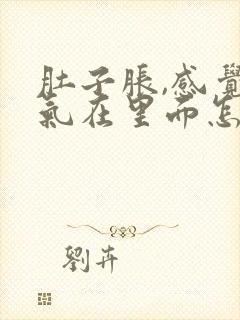 肚子脹,感覺
氣在里面怎
劉卉